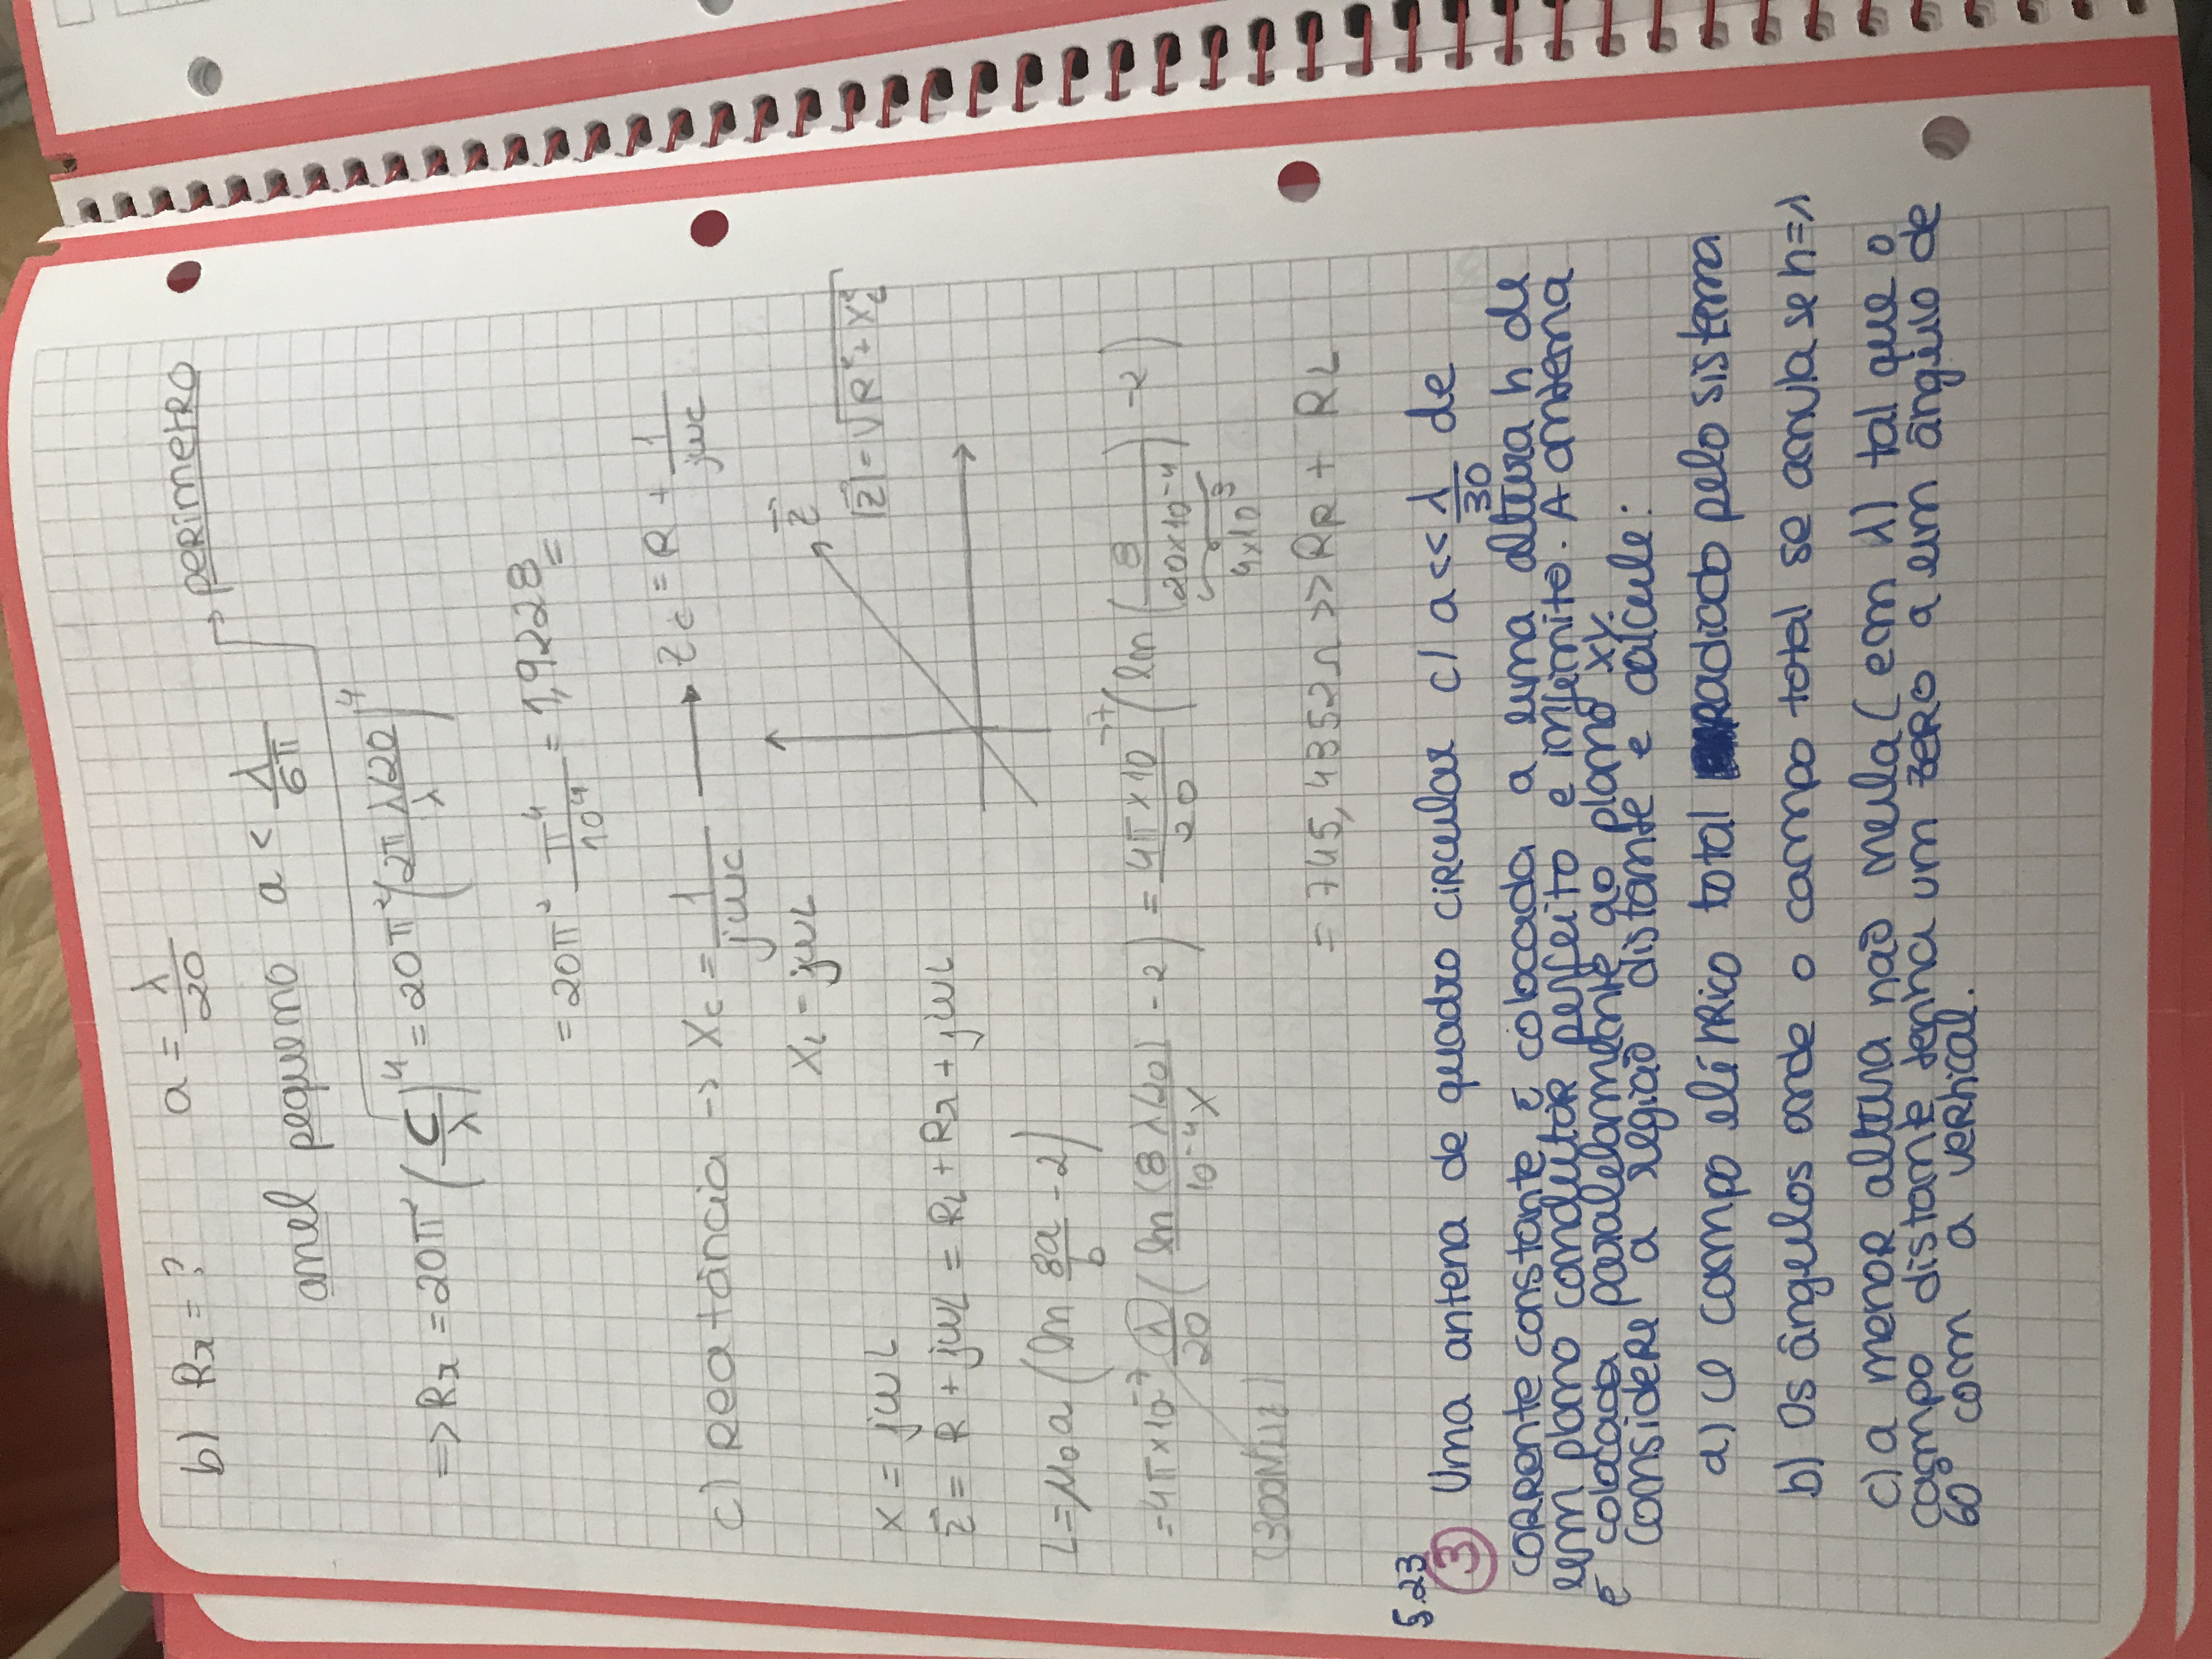 b) Rr = ? a = λ/20
perímetro
anel pequeno a < λ/6π
=> Rr = 20π² (C/λ)⁴ = 20π² (2π λ/20 / λ)⁴
= 20π² π⁴/10⁴ = 1,9228
c) Reatância -> Xc = 1/jωc → Zc = R + 1/jωc
XL = jωL
Z
|Z| = √R² + Xc²
X = jωL
Z = R + jωL = RL + Rr + jωL
L = μ₀a (ln 8a/b - 2)
= 4π×10⁻⁷ λ/20 (ln (8 λ/20)/10⁻⁴λ - 2) = 4π×10⁻⁷/20 (ln (8/20×10⁻⁴) - 2)
4×10³
(300MHz)
= 745,4352Ω >> RR + RL
5.23
3 Uma antena de quadro circular c/ a << λ/30 de
corrente constante, é colocada a uma altura h de
um plano condutor perfeito e infinito. A antena
é colocada paralelamente ao plano xy.
Considere a região distante e calcule:
a) O campo elétrico total radiado pelo sistema
b) Os ângulos onde o campo total se anula se h=λ
c) a menor altura não nula (em λ) tal que o
campo distante tenha um zero a um ângulo de
60° com a vertical.